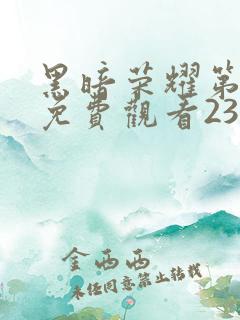 黑暗荣耀第
免費觀看23
金西西
未经同意禁止转载